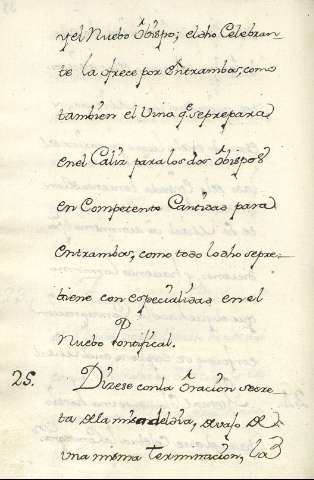 y el Nuebo Obispo; el dho Celebran-
te la ofrece por Entrambos, como
tambien el Vino q.e se prepara
en el Caliz para los dos Obispos
en Competente Cantidad para
entrambos, como todo lo dho se pre-
biene con especialidad en el
Nuebo Pontifical.
25. Dizese con la Oracion secre-
ta de la missa del dia, devajo de
una misma terminacion, la